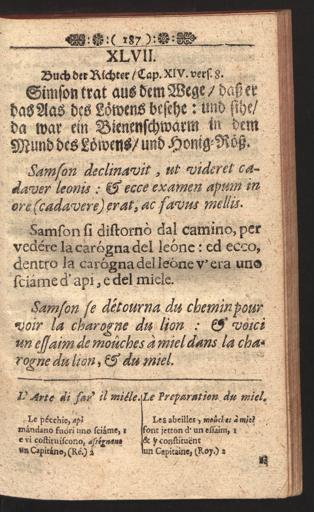 ( 187 )
XLVII.
Buch der Richter / Cap. XIV. vers. 8.
Simson trat aus dem Wege / daß er
das Aas des Löwens besehe : und sihe /
da war ein Bienenschwarm in dem
Mund des Löwens / und Honig-Röß.
Samson declinavit , ut videret ca-
daver leonis : & ecce examen apum in
ore (cadavere) erat, ac favus mellis.
Samson si distornò dal camino, per
vedére la carógna del leóne : ed ecco,
dentro la carógna del leóne v'era uno
sciáme d'api , e del miele.
Samson se détourna du chemin pour
voir la charogne du lion : & voici
un essaim de mouches à miel dans la cha-
rogne du lion, & du miel.
L'Arte di far' il miéle.
Le pécchie, api
mándano fuóri uno sciáme, 1
e vi costituiscono, asségnano
un Capitáno, (Ré.) 2
Le Preparation du miel.
Les abeilles, mouches à miel
font jetton d'un essaim, 1
& y constituënt
un Capitaine, (Roy.) 2